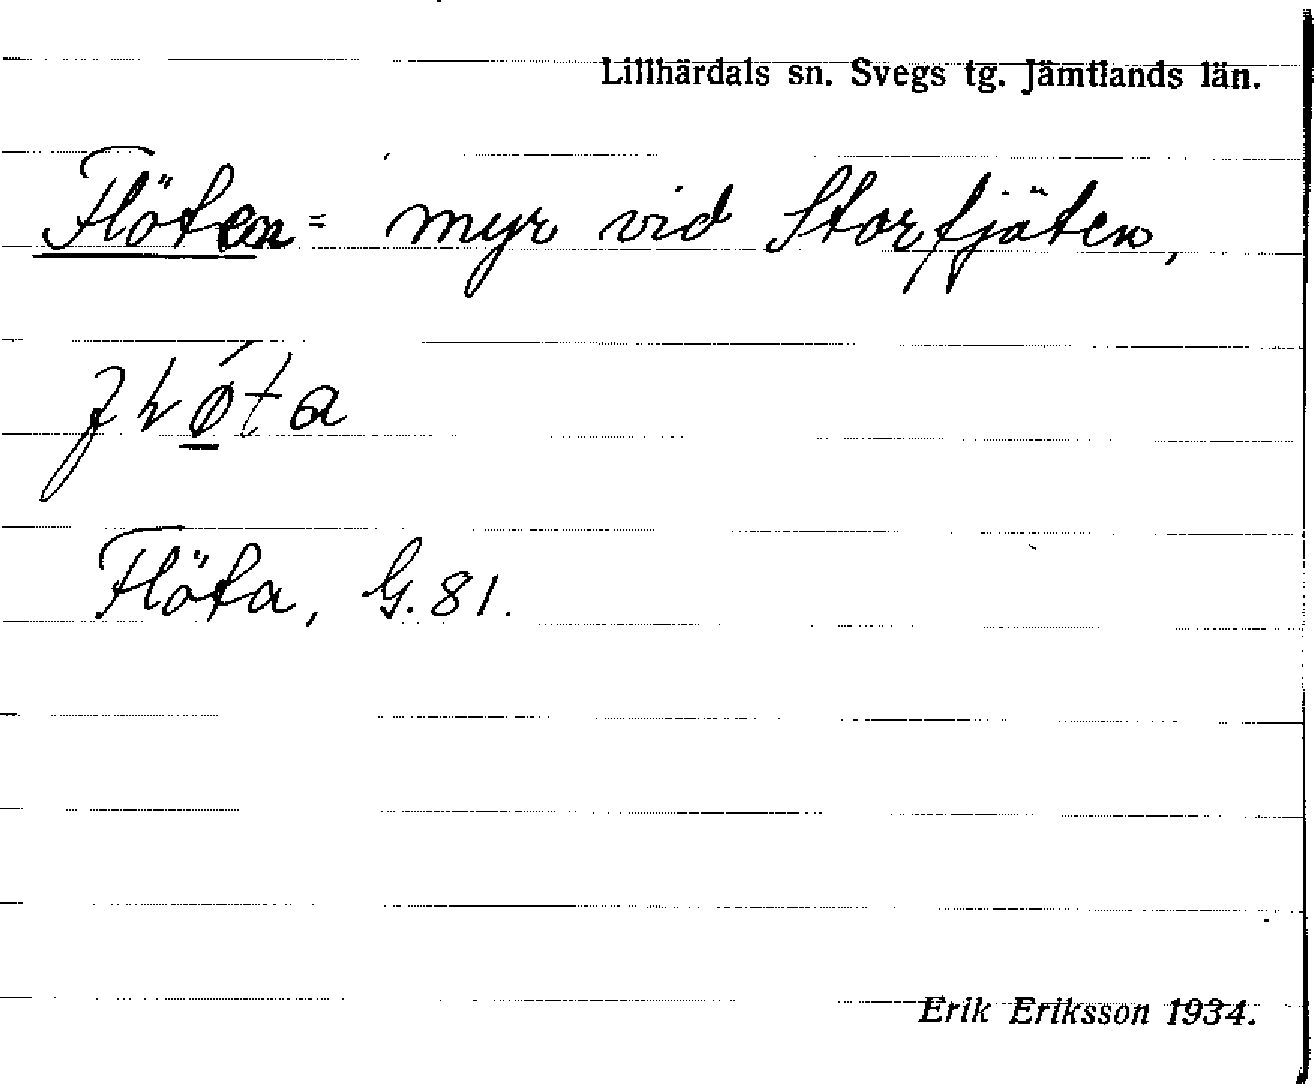 Lillhärdals sn. Svegs tg. Jämtlands län.
Flöten = myr vid Storfjäten,
Flöta, G. 81.
Erik Eriksson 1934.